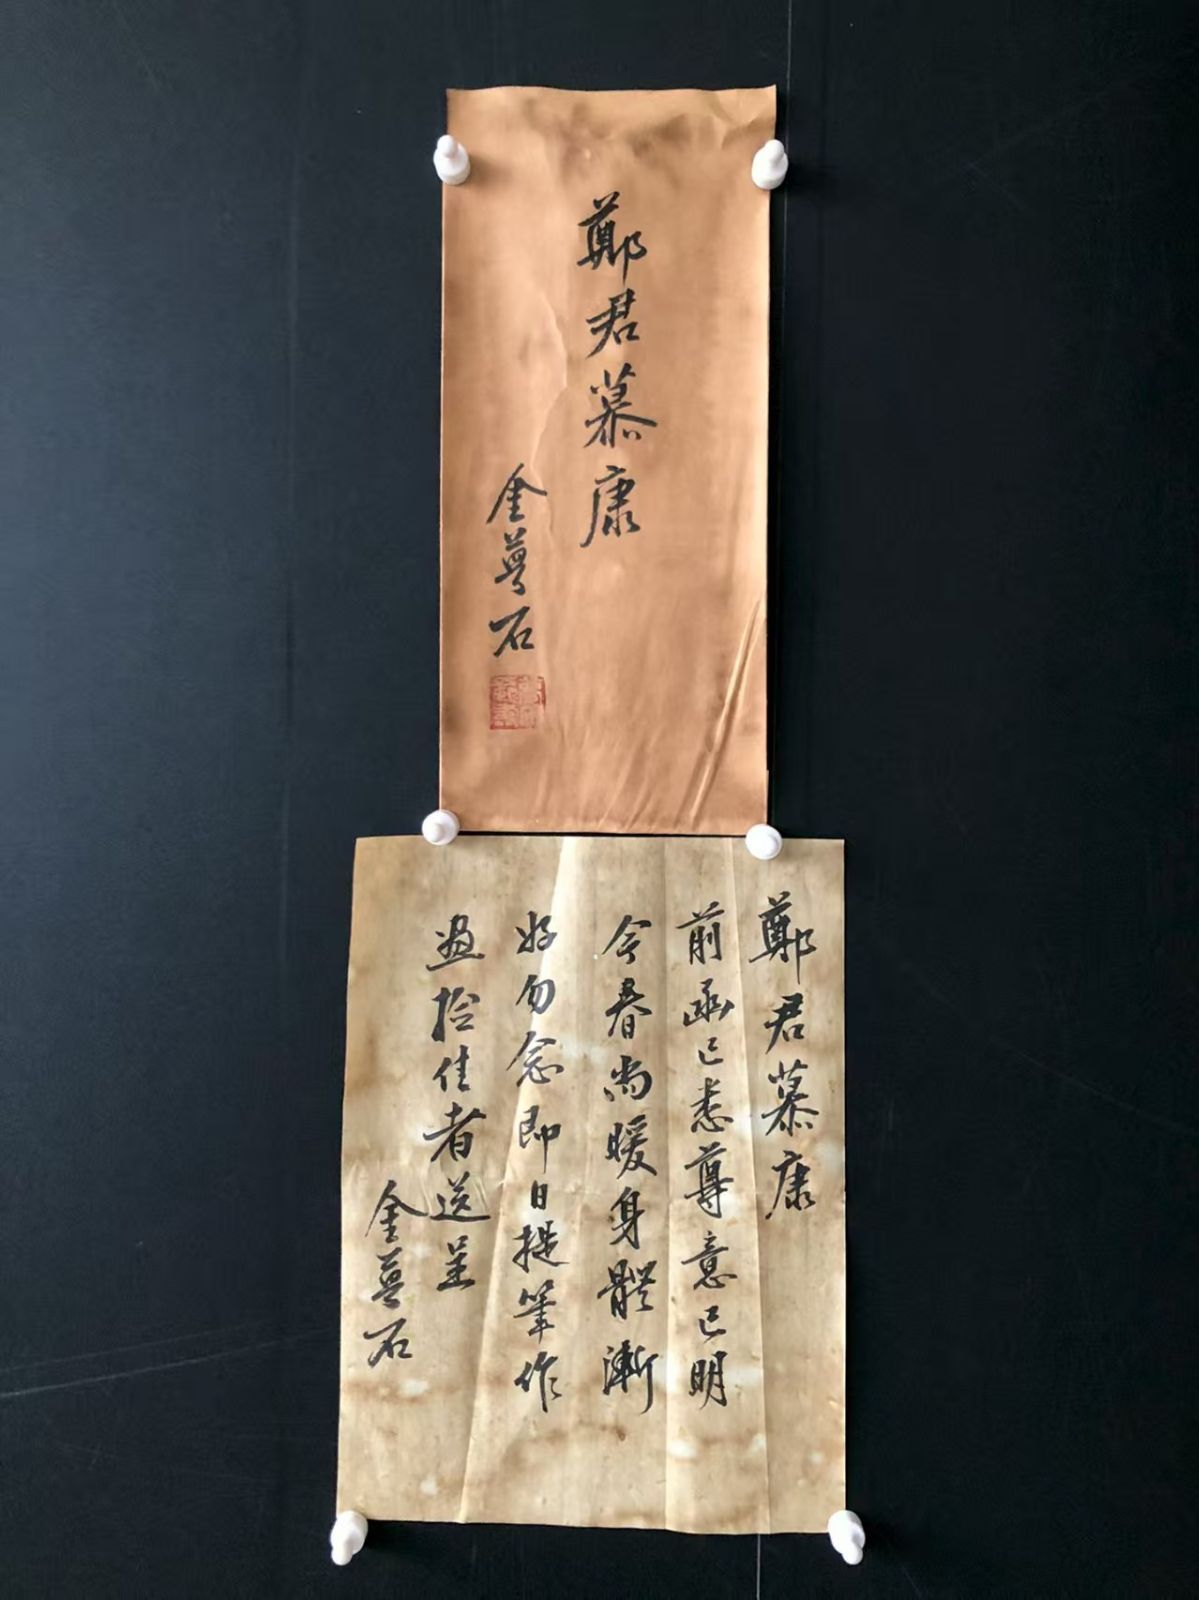 鄭君慕康
金萼石
鄭君慕康
前函已悉尊意已明
今春尚暖身體漸
好勿念即日提筆作
畫拾佳者送呈
金萼石